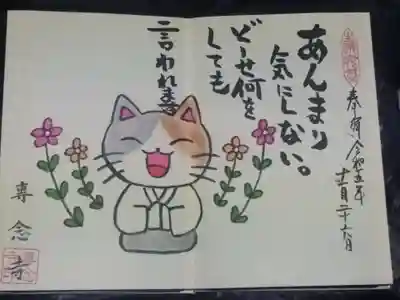 あんまり
気にしない。
どーせ何を
しても
言われる
奉拝 令和五年
十二月二十六日
専念寺